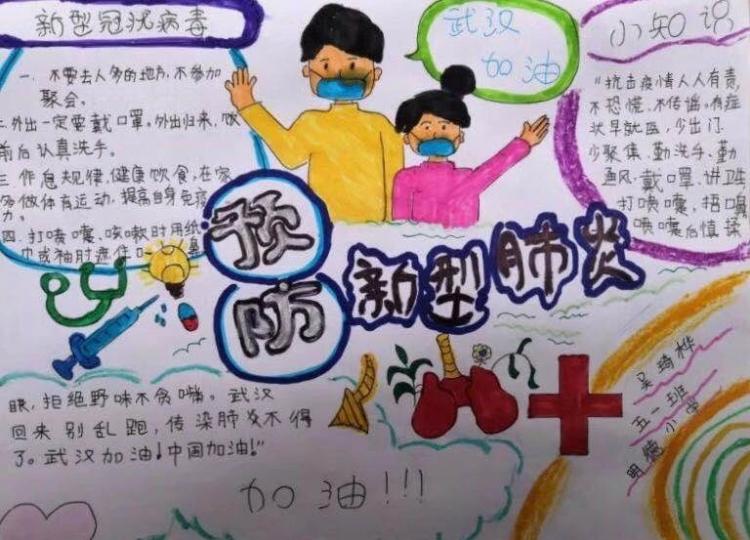 新型冠状病毒
一、不要去人多的地方,不参加
聚会。
二、外出一定要戴口罩。外出归来,饮
前后认真洗手。
三、作息规律,健康饮食,在家
多做体育运动,提高自身免疫
力。
四、打喷嚏,咳嗽时用纸
巾或袖肘遮住口、鼻
武汉
加油
小知识
"抗击疫情人人有责,
不恐慌、不传谣。有症
状早就医,少出门
少聚集、勤洗手、勤
通风、戴口罩、讲卫生
打喷嚏,捂口鼻
喷嚏后慎揉
眼,拒绝野味不贪嘴。武汉
回来别乱跑,传染肺炎不得
了。武汉加油!中国加油!"
预
防
新型肺炎
加油!!!
吴琦桦
五一班
明德小学